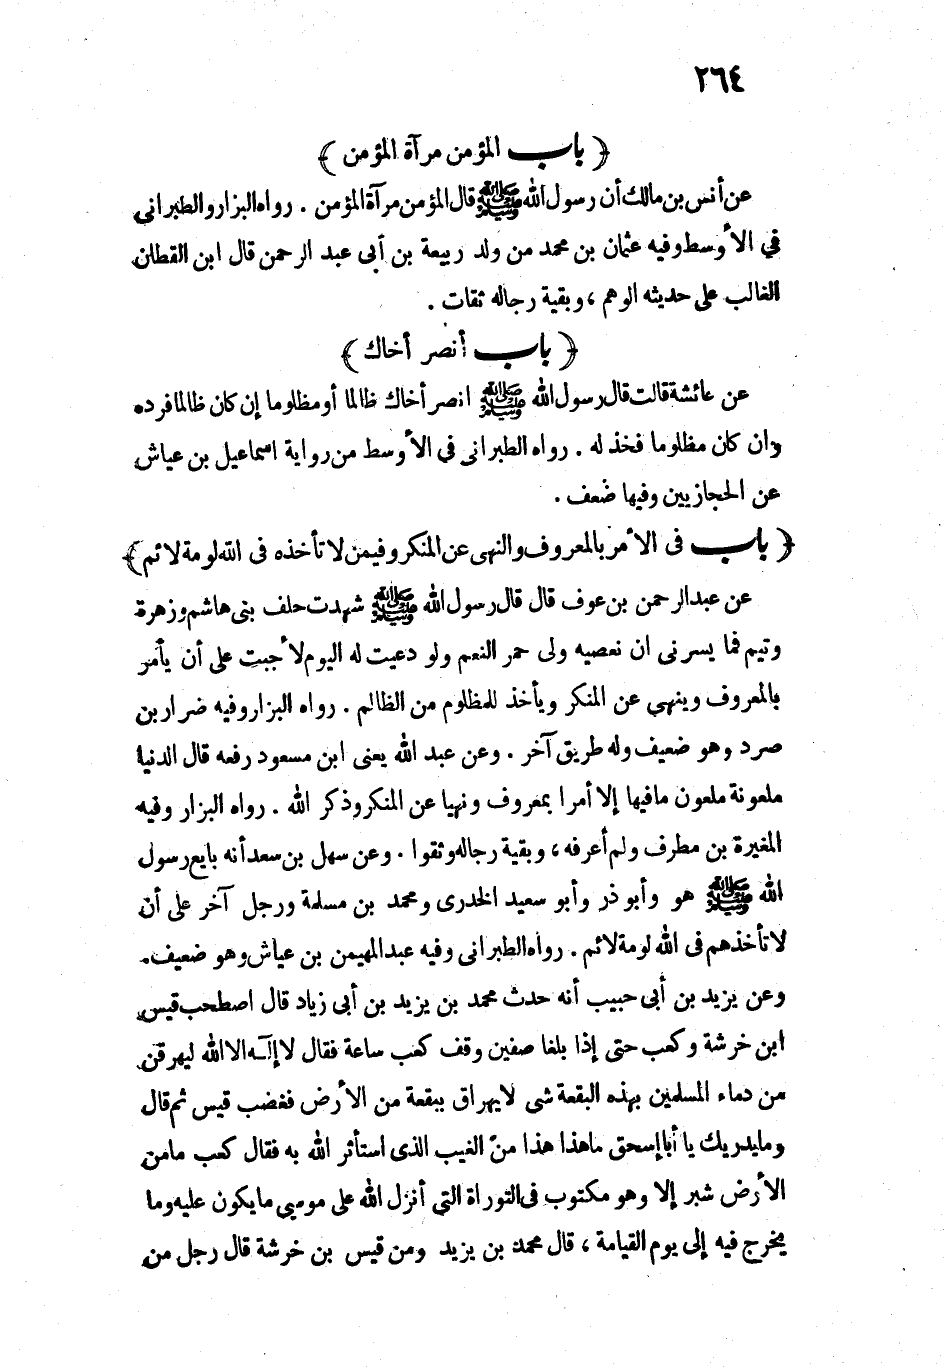 ٢٦٤
﴿ باب المؤمن مرآة المؤمن ﴾
عن أنس بن مالك أن رسول الله ﷺ قال المؤمن مرآة المؤمن . رواه البزار والطبرانى
في الأوسط وفيه عثمان بن محمد من ولد ربيعة بن أبى عبد الرحمن قال ابن القطان
الغالب على حديثه الوهم ، وبقية رجاله ثقات .
﴿ باب أنصر أخاك ﴾
عن عائشة قالت قال رسول الله ﷺ انصر أخاك ظالما أو مظلوما إن كان ظالما فرده
وان كان مظلوما فخذ له . رواه الطبرانى في الأوسط من رواية اسماعيل بن عياش
عن الحجازيين وفيها ضعف .
﴿ باب فى الأمر بالمعروف والنهى عن المنكر وفيمن لا تأخذه فى الله لومة لائم ﴾
عن عبد الرحمن بن عوف قال قال رسول الله ﷺ شهدت حلف بنى هاشم وزهرة
وتيم فما يسرنى ان نعصيه ولى حمر النعم ولو دعيت له اليوم لأجبت على أن يأمر
بالمعروف وينهى عن المنكر ويأخذ للمظلوم من الظالم . رواه البزار وفيه ضرار بن
صرد وهو ضعيف وله طريق آخر . وعن عبد الله يعنى ابن مسعود رفعه قال الدنيا
ملعونة ملعون مافيها إلا أمرا بمعروف ونهيا عن المنكر وذكر الله . رواه البزار وفيه
المغيرة بن مطرف ولم أعرفه ، وبقية رجاله وثقوا . وعن سهل بن سعد أنه بايع رسول
الله ﷺ هو وأبو ذر وأبو سعيد الخدرى ومحمد بن مسلمة ورجل آخر على أن
لا تأخذهم فى الله لومة لائم . رواه الطبرانى وفيه عبد المهيمن بن عياش وهو ضعيف .
وعن يزيد بن أبى حبيب أنه حدث محمد بن يزيد بن أبى زياد قال اصطحب قيس
ابن خرشة وكعب حتى إذا بلغا صفين وقف كعب ساعة فقال لا إله الا الله ليهرقن
من دماء المسلمين بهذه البقعة شى لايهراق ببقعة من الأرض فغضب قيس ثم قال
ومايدريك يا أبا إسحق ماهذا هذا من الغيب الذى استأثر الله به فقال كعب مامن
الأرض شبر إلا وهو مكتوب فى التوراة التي أنزل الله على موسى مايكون عليه وما
يخرج فيه إلى يوم القيامة ، قال محمد بن يزيد ومن قيس بن خرشة قال رجل من